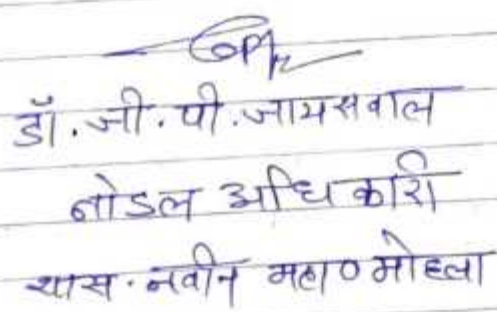 डॉ. जी. पी. जायसवाल
नोडल अधिकारी
शास. नवीन महा० मोहला